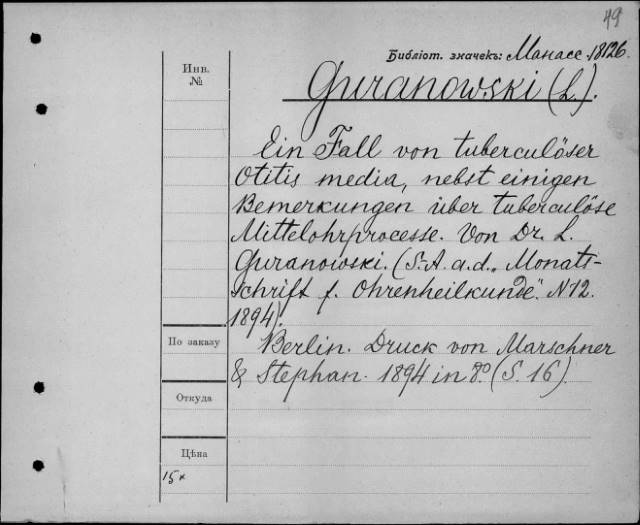 49
Библіот. значекъ: Манасс. 18126.
Инв.
№
Guranowski (L.).
Ein Fall von tuberculöser
Otitis media, nebst einigen
Bemerkungen über tuberculöse
Mittelohrprocesse. Von Dr. L.
Guranowski. (S.-A. a. d. „Monats-
schrift f. Ohrenheilkunde". N 12.
1894).
По заказу
Berlin. Druck von Marschner
& Stephan. 1894 in 8.º (S. 16).
Откуда
Цѣна
15 к